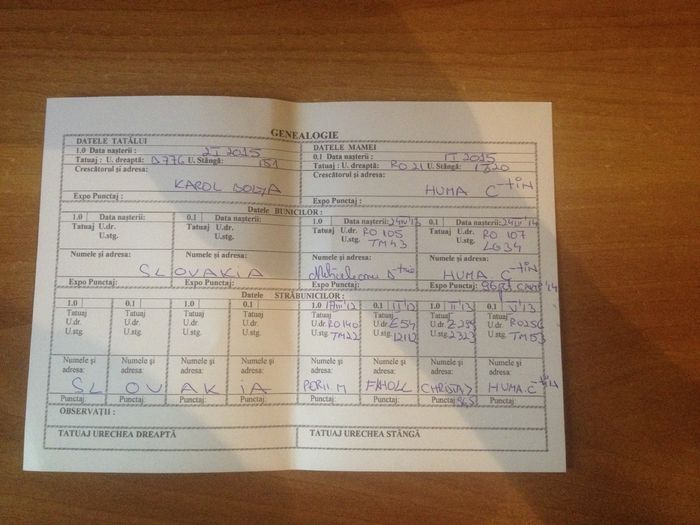 GENEALOGIE
DATELE TATĂLUI
1.0 Data nașterii : 2I 2015
Tatuaj : U. dreaptă: D776 U. Stângă: 151
Crescătorul și adresa:
KAROL
Expo Punctaj :
DATELE MAMEI
0.1 Data nașterii : 1I 2015
Tatuaj : U. dreaptă: RO 21 U. Stângă: 1320
Crescătorul și adresa:
HUMA C-tin
Expo Punctaj :
Datele BUNICILOR :
1.0 Data nașterii: 0.1 Data nașterii: 1.0 Data nașterii: 0.1 Data nașterii:
Tatuaj U.dr. Tatuaj U.dr. Tatuaj U.dr. RO 105 Tatuaj U.dr. RO 107
U.stg. U.stg. U.stg. TM43 U.stg. LG34
Numele și adresa: Numele și adresa: Numele și adresa: Numele și adresa:
SLOVAKIA HUMA C-tin
Expo Punctaj: Expo Punctaj: Expo Punctaj: Expo Punctaj: 96 CAMP '14
Datele STRĂBUNICILOR :
1.0 0.1 1.0 0.1 1.0 0.1 II'13 1.0 II'13 0.1 V'13
Tatuaj Tatuaj Tatuaj Tatuaj Tatuaj Tatuaj Tatuaj Tatuaj
U.dr. U.dr. U.dr. U.dr. U.dr. RO140 U.dr. E54 U.dr. Z289 U.dr. RO256
U.stg. U.stg. U.stg. U.stg. U.stg. TM22 U.stg. 12112 U.stg. 2323 U.stg. TM53
Numele și Numele și Numele și Numele și Numele și Numele și Numele și Numele și
adresa: adresa: adresa: adresa: adresa: adresa: adresa: adresa:
SLOVAKIA M HUMA.C-tin
Punctaj: Punctaj: Punctaj: Punctaj: Punctaj: Punctaj: Punctaj: 965 Punctaj:
OBSERVAȚII :
TATUAJ URECHEA DREAPTĂ TATUAJ URECHEA STÂNGĂ